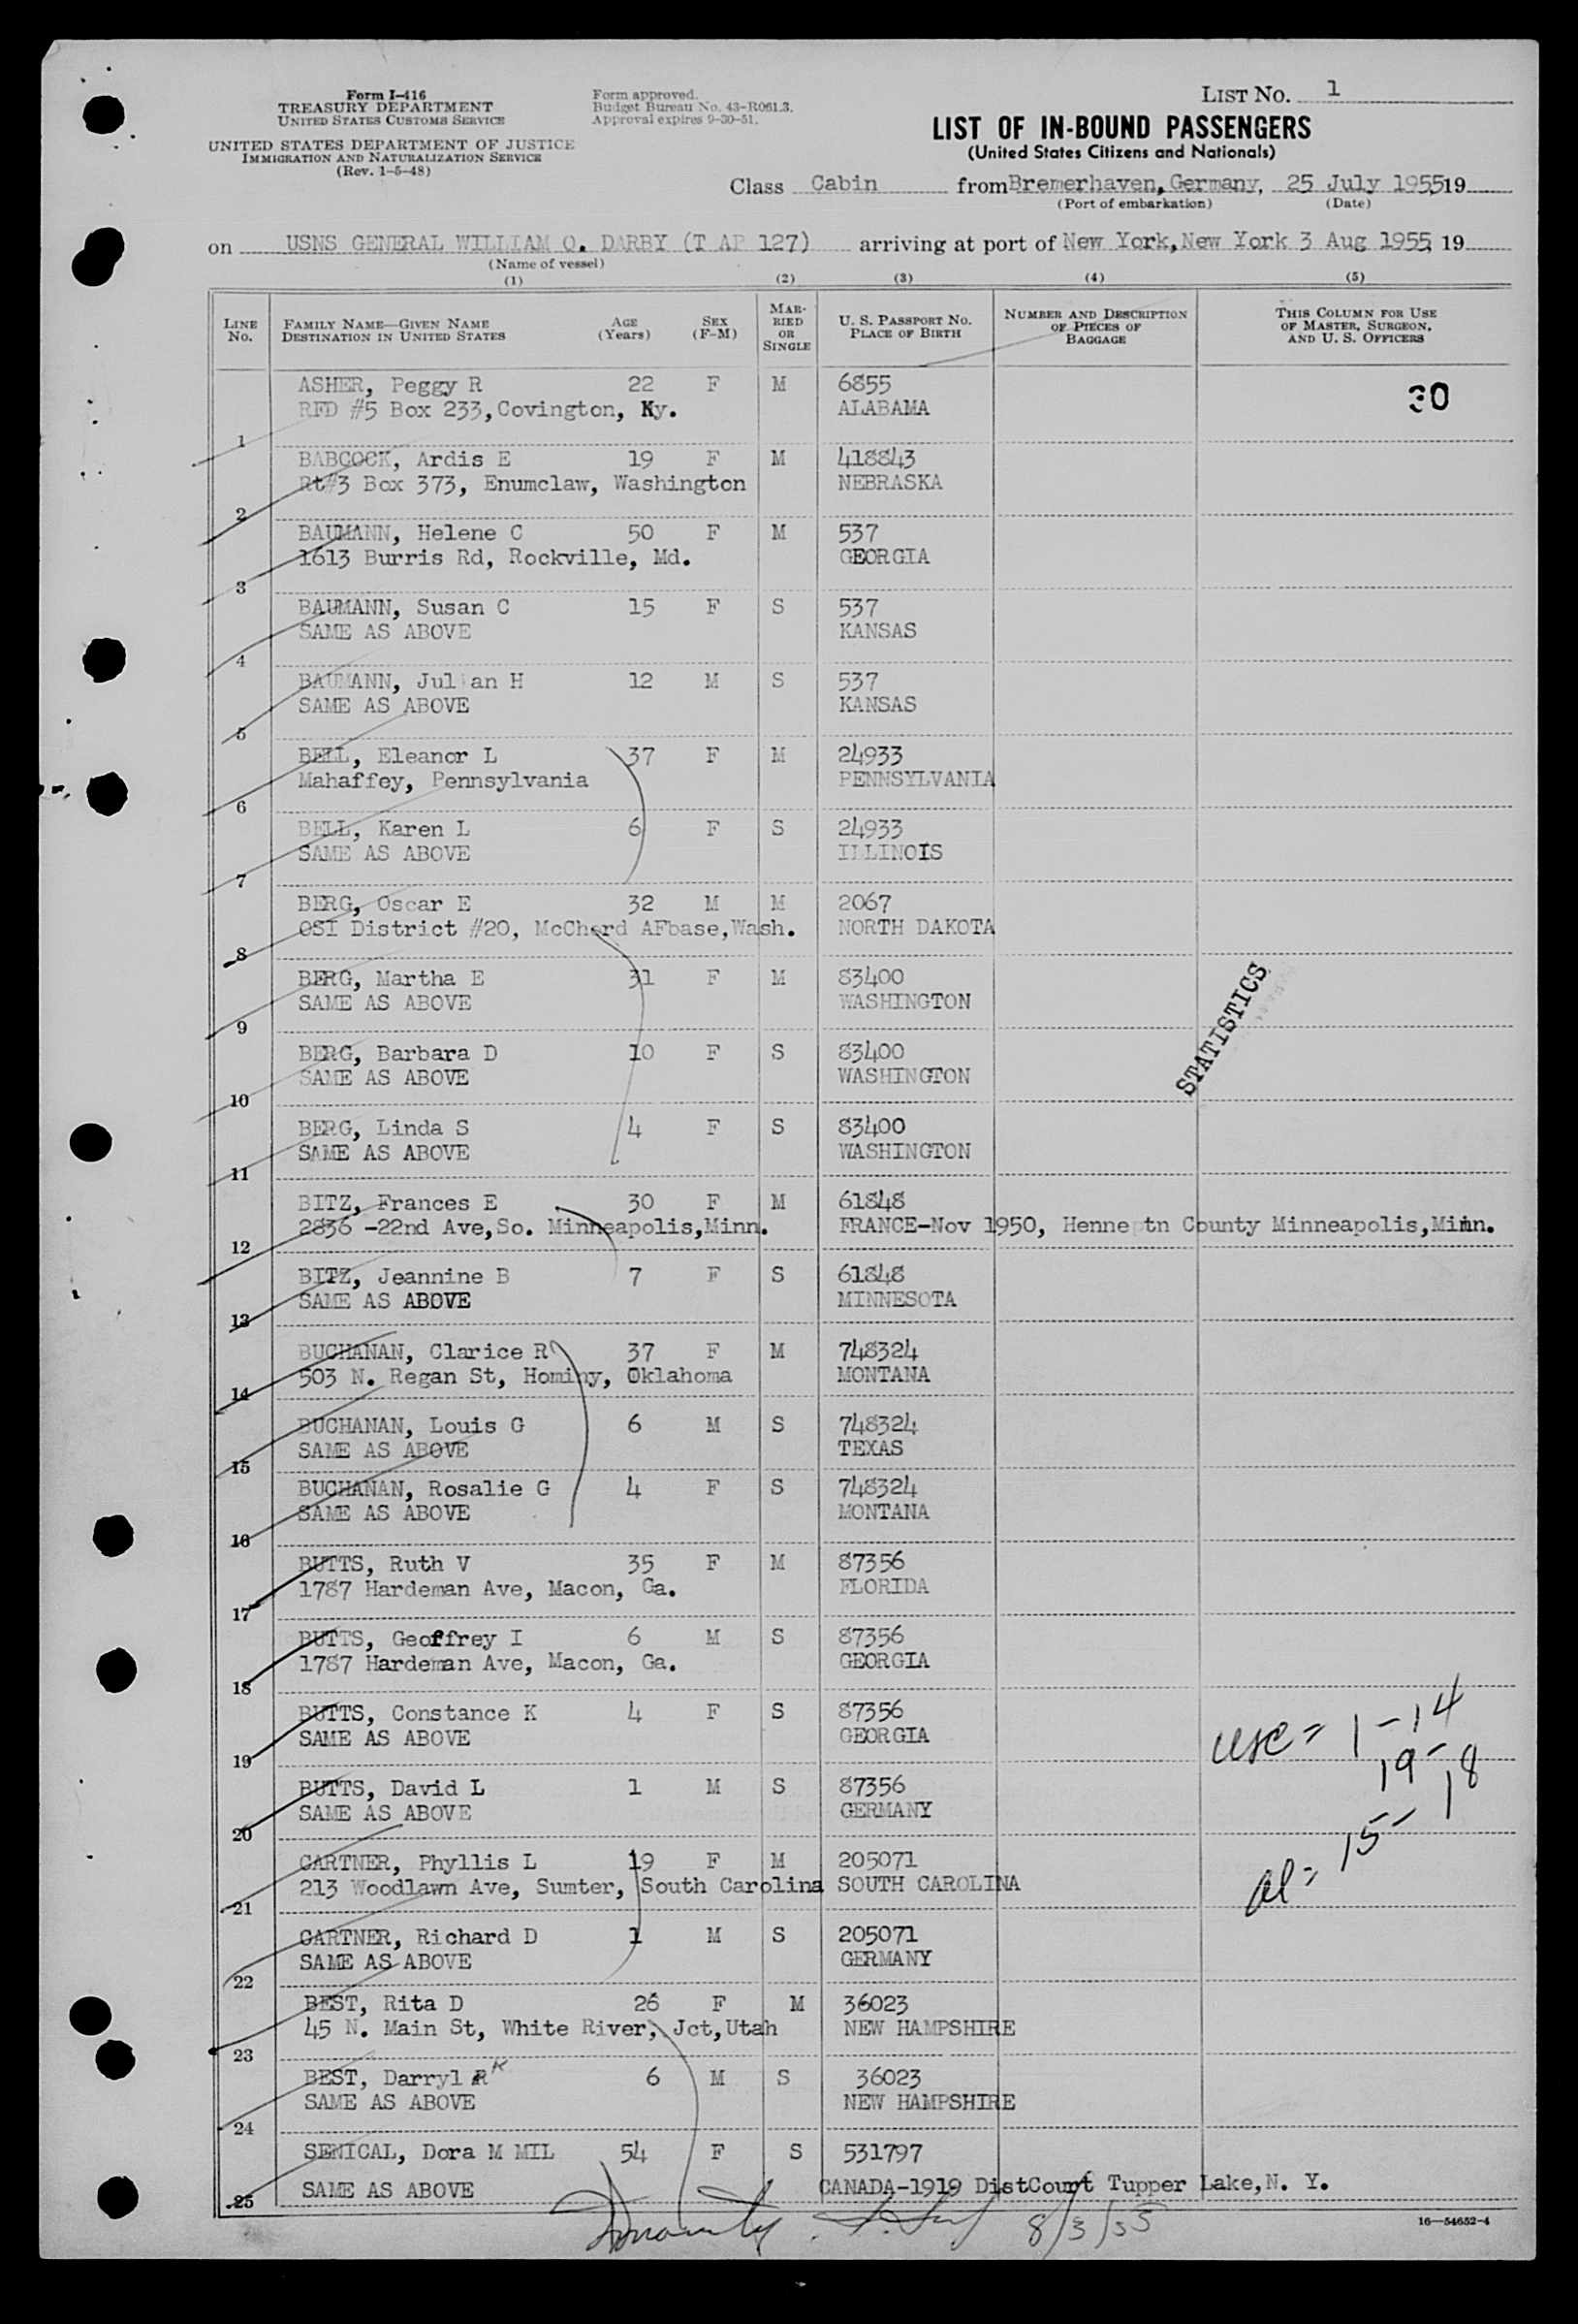 Form I-416
TREASURY DEPARTMENT
UNITED STATES CUSTOMS SERVICE
UNITED STATES DEPARTMENT OF JUSTICE
IMMIGRATION AND NATURALIZATION SERVICE
(Rev. 1-5-48)
Form approved.
Budget Bureau No. 43-R061.3.
Approval expires 9-30-51.
LIST NO. 1
LIST OF IN-BOUND PASSENGERS
(United States Citizens and Nationals)
Class Cabin from Bremerhaven, Germany, 25 July 1955 19
(Port of embarkation) (Date)
on USNS GENERAL WILLIAM O. DARBY (T AP 127) arriving at port of New York, New York 3 Aug 1955, 19
(Name of vessel)
(1) (2) (3) (4) (5)
LINE NO. FAMILY NAME—GIVEN NAME DESTINATION IN UNITED STATES AGE (Years) SEX (F-M) MARRIED OR SINGLE U. S. PASSPORT NO. PLACE OF BIRTH NUMBER AND DESCRIPTION OF PIECES OF BAGGAGE THIS COLUMN FOR USE OF MASTER, SURGEON, AND U. S. OFFICERS
ASHER, Peggy R 22 F M 6855 30
RFD #5 Box 233, Covington, Ky. ALABAMA
1
BABCOCK, Ardis E 19 F M 418843
Rt#3 Box 373, Enumclaw, Washington NEBRASKA
2
BAUMANN, Helene C 50 F M 537
1613 Burris Rd, Rockville, Md. GEORGIA
3
BAUMANN, Susan C 15 F S 537
SAME AS ABOVE KANSAS
4
BAUMANN, Julian H 12 M S 537
SAME AS ABOVE KANSAS
5
BELL, Eleanor L 37 F M 24933
Mahaffey, Pennsylvania PENNSYLVANIA
6
BELL, Karen L 6 F S 24933
SAME AS ABOVE ILLINOIS
7
BERG, Oscar E 32 M M 2067
OSI District #20, McChord AFbase, Wash. NORTH DAKOTA
8
BERG, Martha E 31 F M 83400
SAME AS ABOVE WASHINGTON
9
STATISTICS
BERG, Barbara D 10 F S 83400
SAME AS ABOVE WASHINGTON
10
BERG, Linda S 4 F S 83400
SAME AS ABOVE WASHINGTON
11
BITZ, Frances E 30 F M 61848
2836 -22nd Ave, So. Minneapolis, Minn. FRANCE-Nov 1950, Henneptn County Minneapolis, Minn.
12
BITZ, Jeannine B 7 F S 61848
SAME AS ABOVE MINNESOTA
13
BUCHANAN, Clarice R 37 F M 748324
503 N. Regan St, Hominy, Oklahoma MONTANA
14
BUCHANAN, Louis G 6 M S 748324
SAME AS ABOVE TEXAS
15
BUCHANAN, Rosalie G 4 F S 748324
SAME AS ABOVE MONTANA
16
BUTTS, Ruth V 35 F M 87356
1787 Hardeman Ave, Macon, Ga. FLORIDA
17
BUTTS, Geoffrey I 6 M S 87356
1787 Hardeman Ave, Macon, Ga. GEORGIA
18
BUTTS, Constance K 4 F S 87356
SAME AS ABOVE GEORGIA
19
USC = 1-14
19-18
BUTTS, David L 1 M S 87356
SAME AS ABOVE GERMANY
20
al = 15-
GARTNER, Phyllis L 19 F M 205071
213 Woodlawn Ave, Sumter, South Carolina SOUTH CAROLINA
21
GARTNER, Richard D 1 M S 205071
SAME AS ABOVE GERMANY
22
BEST, Rita D 26 F M 36023
45 N. Main St, White River, Jct, Utah NEW HAMPSHIRE
23
BEST, Darryl R K 6 M S 36023
SAME AS ABOVE NEW HAMPSHIRE
24
SENICAL, Dora M MIL 54 F S 531797
SAME AS ABOVE CANADA-1919 DistCourt Tupper Lake, N. Y.
25
8/3/55
16—54652-4